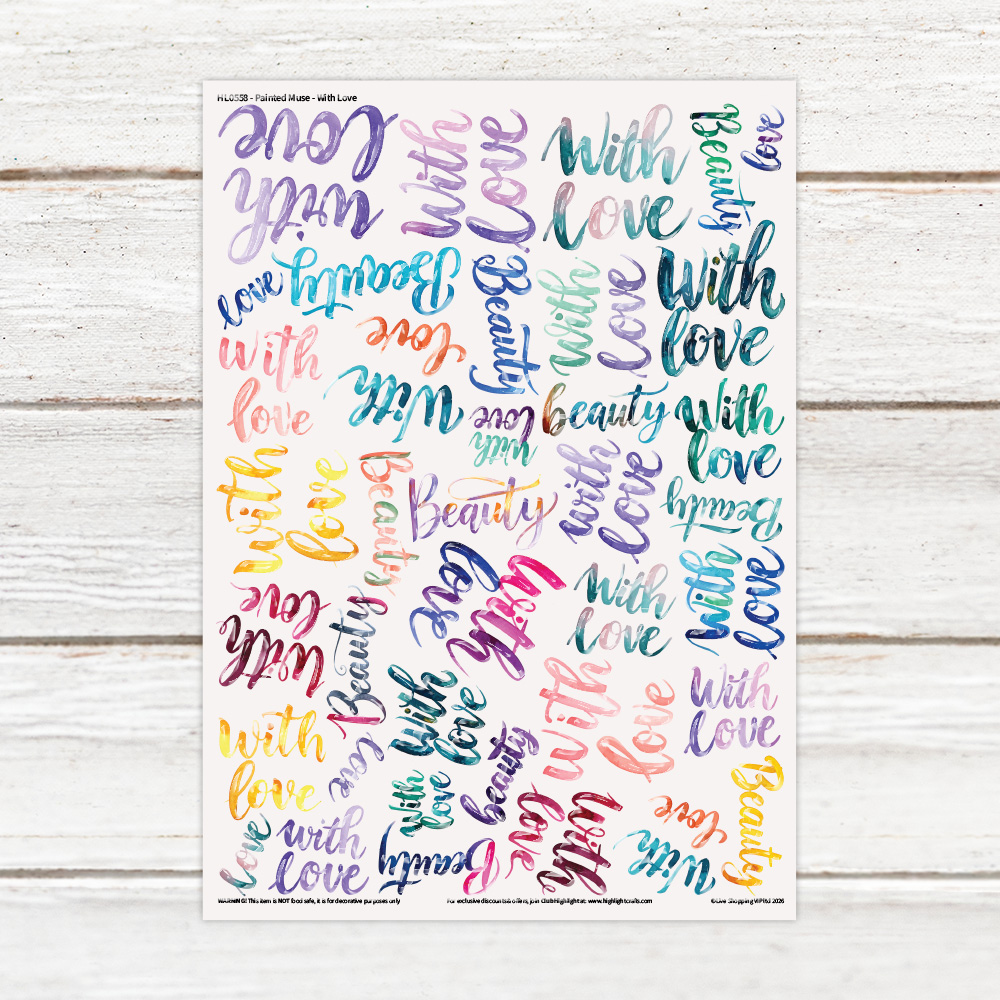 HL0558 - Painted Muse - With Love
with
love
With
Love
With
love
Beauty
love
love
Beauty
Beauty
With
love
With
love
With
love
love
With
with
love
beauty
With
love
with
love
Beauty
Beauty
with
love
Beauty
with
love
With
love
with
love
with
love
Beauty
With
love
With
love
With
love
with
love
love
beauty
With
love
Beauty
love
with
love
Beauty
With
love
With
love
WARNING! This item is NOT food safe, it is for decorative purposes only
For exclusive discounts & offers, join Club Highlight at: www.highlightcrafts.com
©Live Shopping VIP ltd 2026